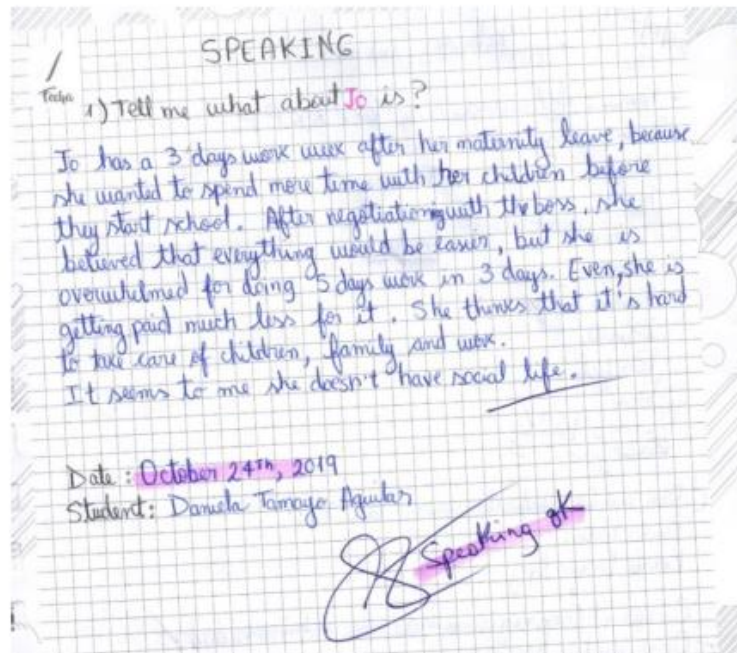 SPEAKING
1) Tell me what about Jo is?
Jo has a 3 days work week after her maternity leave, because
she wanted to spend more time with her children before
they start school. After negotiationg with the boss, she
believed that everything would be easier, but she is
overwhelmed for doing 5 days work in 3 days. Even, she is
getting paid much less for it. She thinks that it's hard
to take care of children, family and work.
It seems to me she doesn't have social life.
Date: October 24Th, 2019
Student: Daniela Tamayo Aguilar
Speaking ok